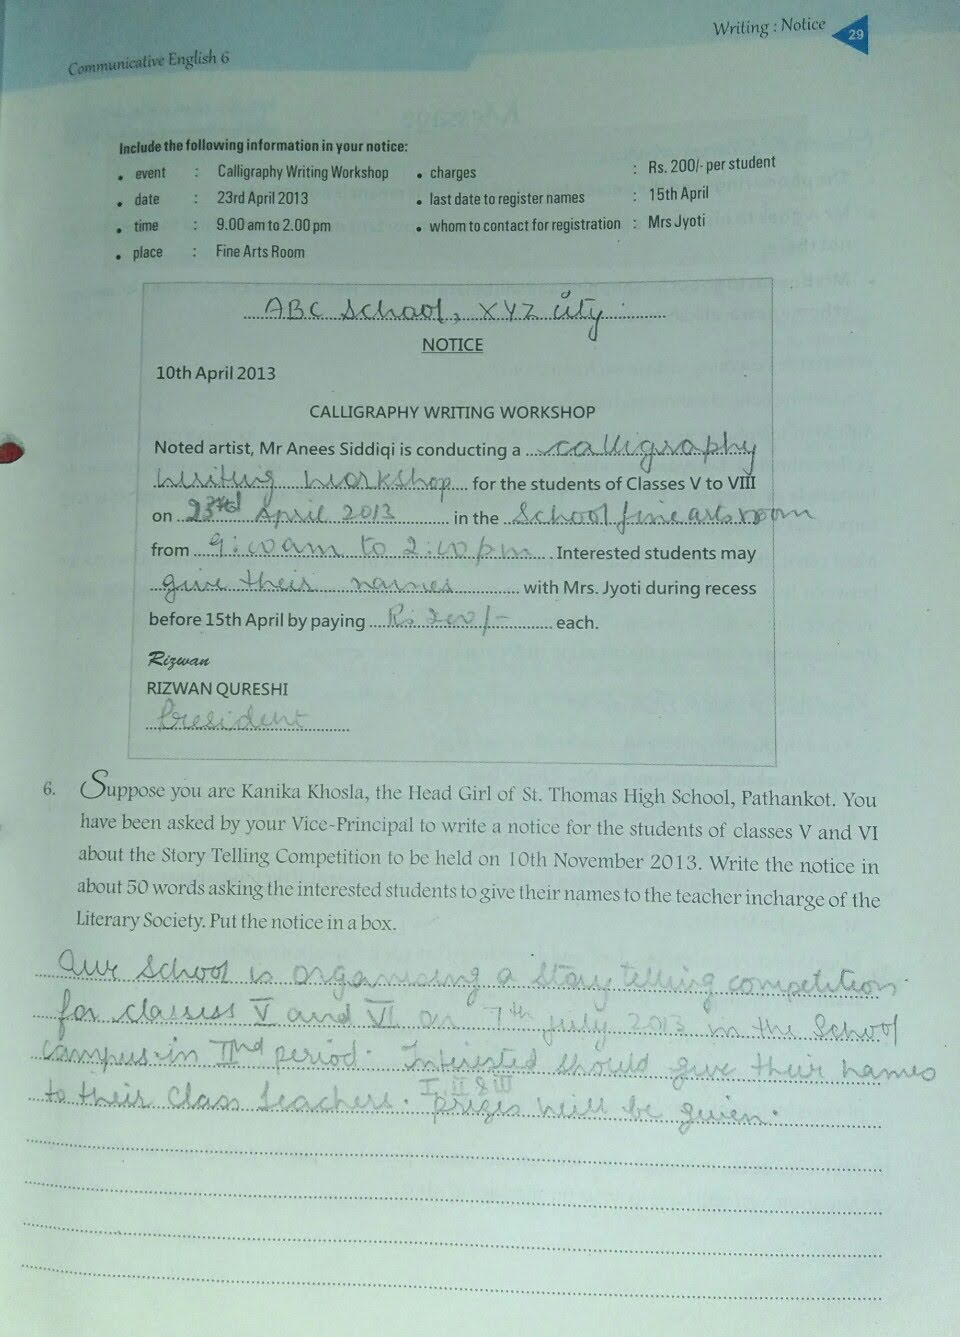 Writing : Notice 29
Communicative English 6
Include the following information in your notice:
• event : Calligraphy Writing Workshop • charges : Rs. 200/- per student
• date : 23rd April 2013 • last date to register names : 15th April
• time : 9.00 am to 2.00 pm • whom to contact for registration : Mrs Jyoti
• place : Fine Arts Room
ABC School, XYZ city
NOTICE
10th April 2013
CALLIGRAPHY WRITING WORKSHOP
Noted artist, Mr Anees Siddiqi is conducting a calligraphy
writing workshop for the students of Classes V to VIII
on 23rd April 2013 in the School fine arts room
from 9:00am to 2:00pm. Interested students may
give their names with Mrs. Jyoti during recess
before 15th April by paying Rs 200/- each.
Rizwan
RIZWAN QURESHI
President
6. Suppose you are Kanika Khosla, the Head Girl of St. Thomas High School, Pathankot. You
have been asked by your Vice-Principal to write a notice for the students of classes V and VI
about the Story Telling Competition to be held on 10th November 2013. Write the notice in
about 50 words asking the interested students to give their names to the teacher incharge of the
Literary Society. Put the notice in a box.
Our School is organising a story telling competition
for classess V and VI on 7th July 2013 in the School
campus in IInd period. Interested should give their names
to their class teachers. I, II & III prizes will be given.